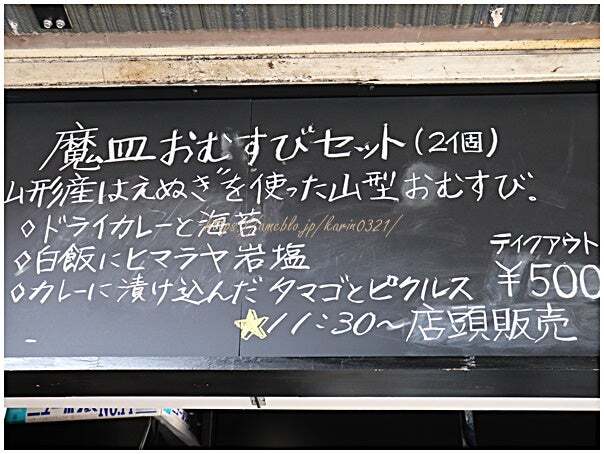 魔皿おむすびセット(2個)
山形産はえぬきを使った山型おむすび。
◇ドライカレーと海苔
◇白飯にヒマラヤ岩塩
◇カレーに漬け込んだタマゴとピクルス
テイクアウト
¥500
★11:30～店頭販売
https://ameblo.jp/karin0321/